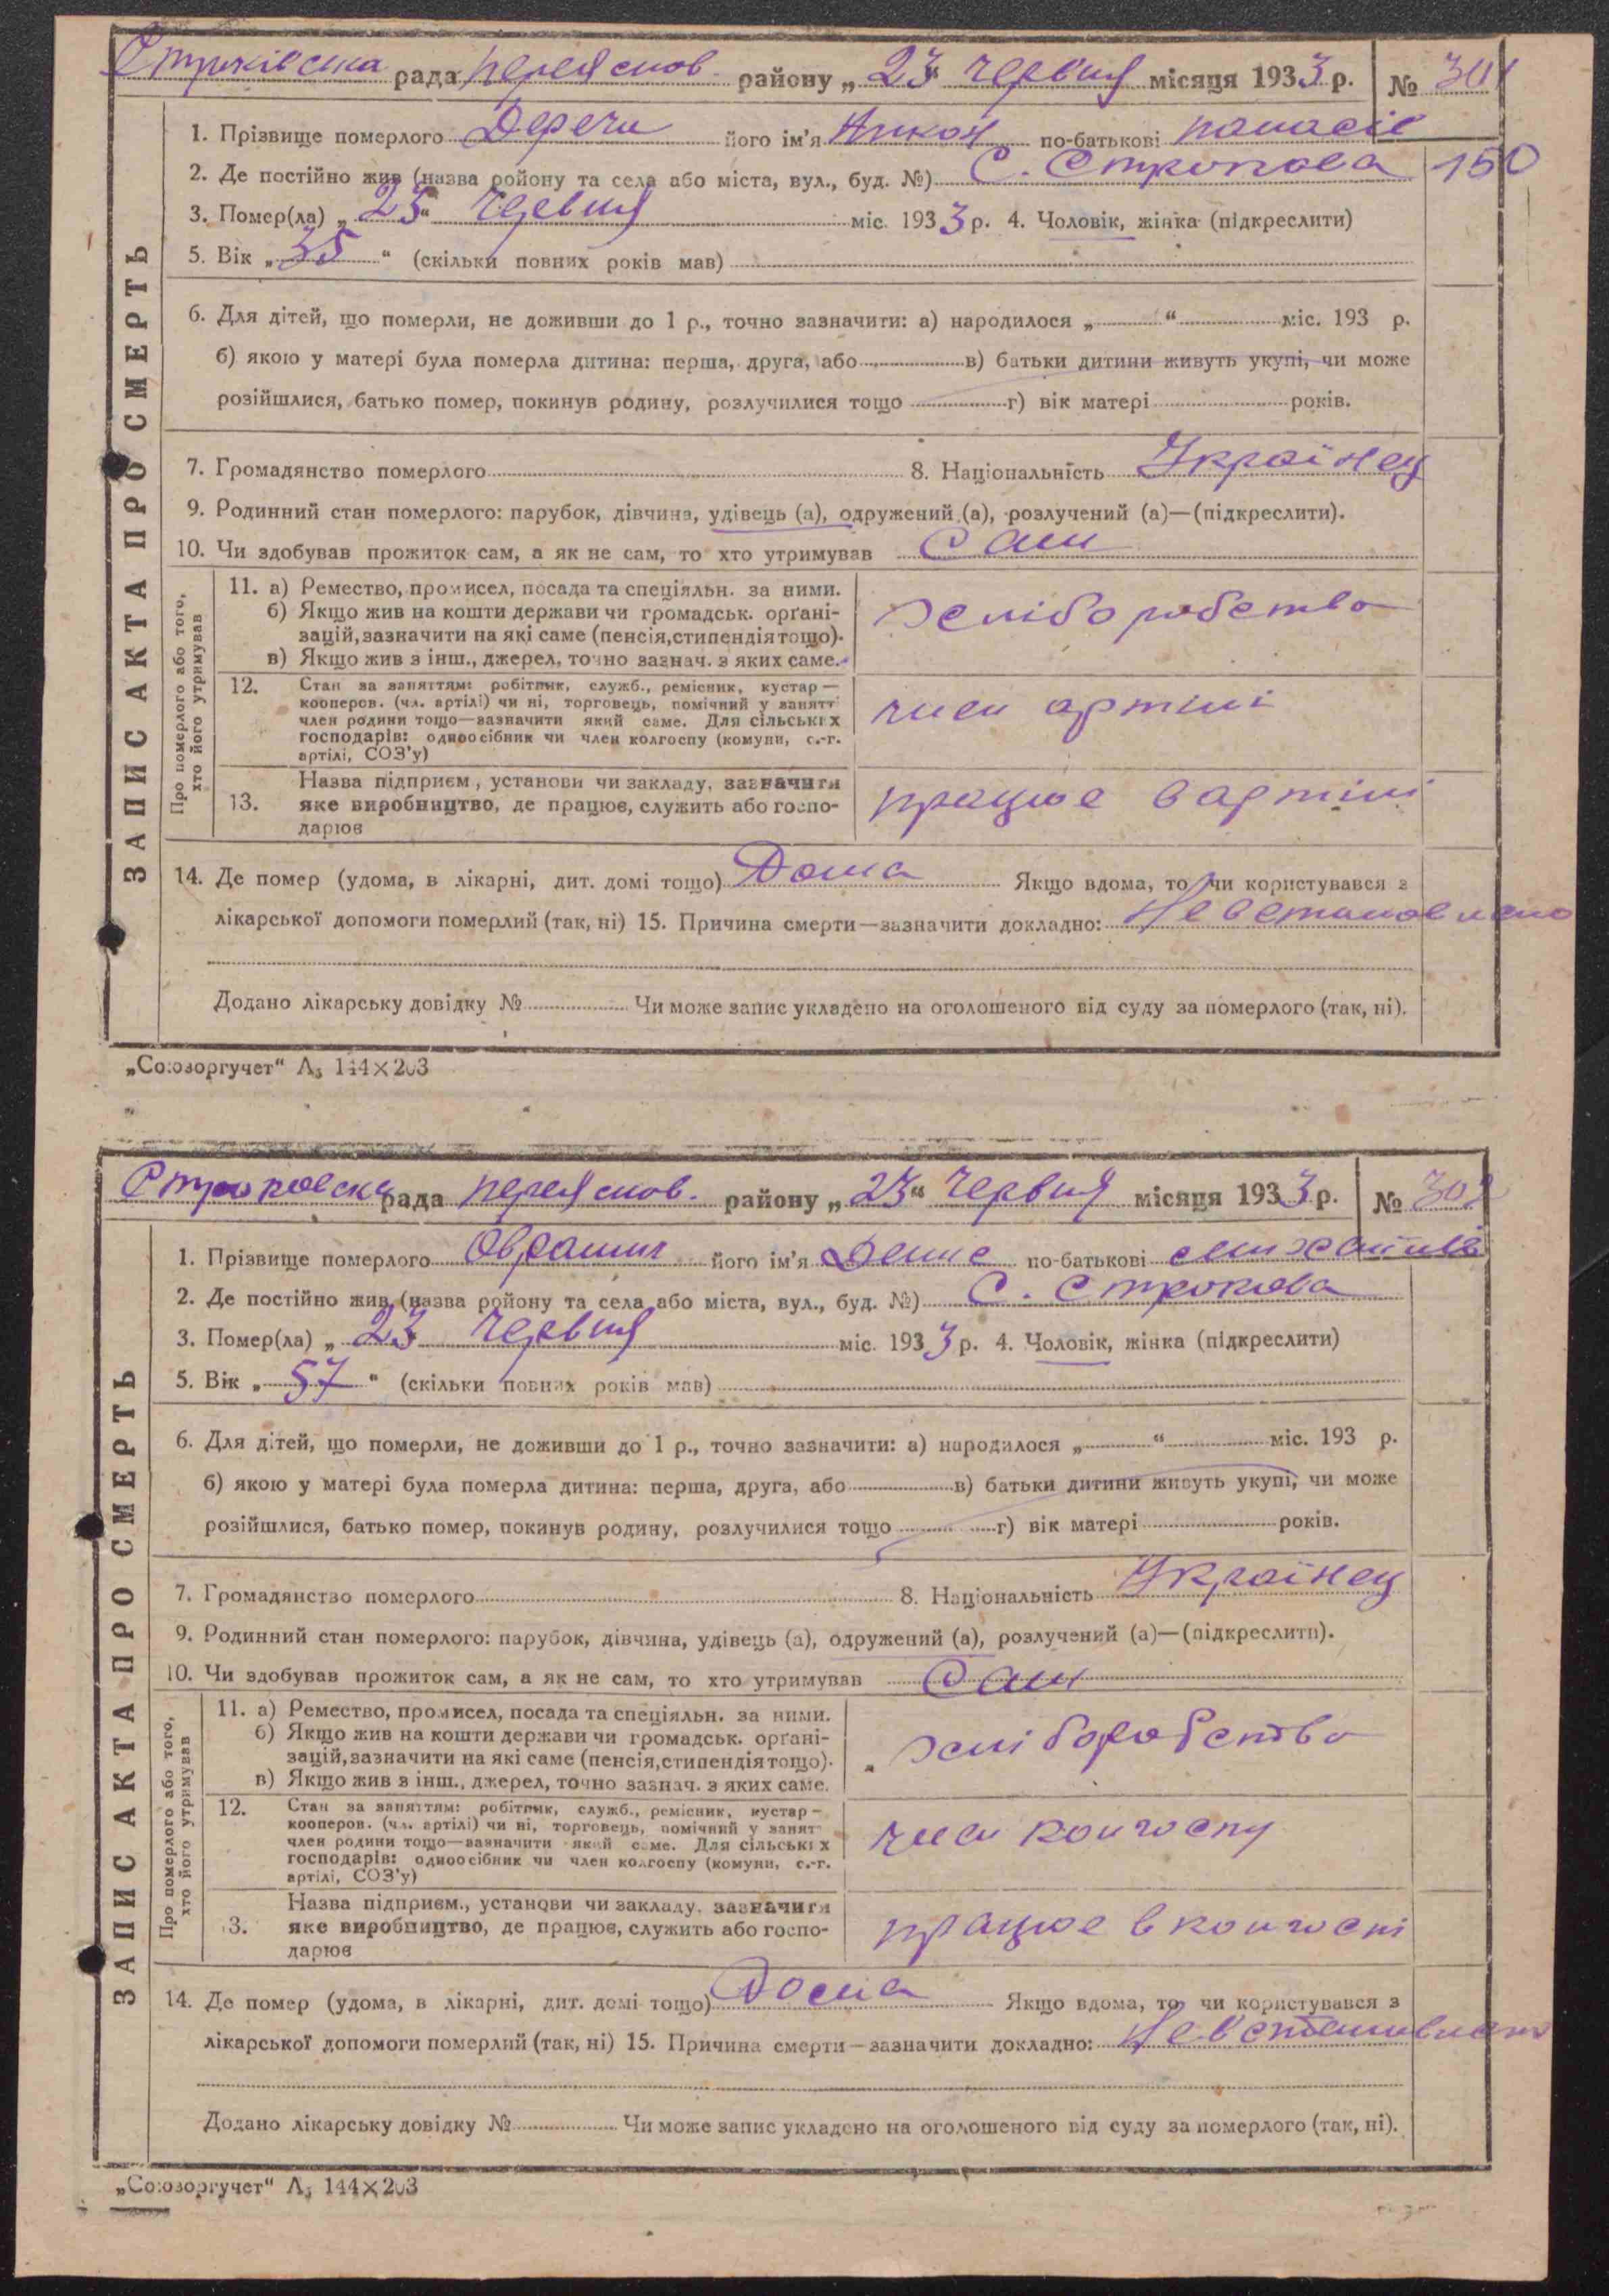 рада переяслов. району „23“ червня місяця 1933 р. № 301
1. Прізвище померлого його ім'я по-батькові панасів
2. Де постійно жив (назва ройону та села або міста, вул., буд. №) С. Строкова 150
3. Помер(ла) „ “ червня міс. 1933 р. 4. Чоловік, жінка (підкреслити)
5. Вік „35“ (скільки повних років мав)
6. Для дітей, що померли, не доживши до 1 р., точно зазначити: а) народилося „ “ міс. 193 р.
б) якою у матері була померла дитина: перша, друга, або в) батьки дитини живуть укупі, чи може
розійшлися, батько помер, покинув родину, розлучилися тощо г) вік матері років.
7. Громадянство померлого 8. Національність Українец
9. Родинний стан померлого: парубок, дівчина, удівець (а), одружений (а), розлучений (а)—(підкреслити).
10. Чи здобував прожиток сам, а як не сам, то хто утримував Сам
ЗАПИС АКТА ПРО СМЕРТЬ
Про померлого або того,
хто його утримував
11. а) Ремество, промисел, посада та спеціяльн. за ними.
б) Якщо жив на кошти держави чи громадськ. орґані-
зацій, зазначити на які саме (пенсія, стипендія тощо).
в) Якщо жив з інш., джерел, точно зазнач. з яких саме.
хліборобство
12. Стан за заняттям: робітник, служб., ремісник, кустар —
кооперов. (чл. артілі) чи ні, торговець, помічний у занятт
член родини тощо—зазначити який саме. Для сільських
господарів: одноосібник чи член колгоспу (комуни, с.-г.
артілі, СОЗ'у)
член артілі
13. Назва підприєм., установи чи закладу, зазначити
яке виробництво, де працює, служить або госпо-
дарює
працює в артілі
14. Де помер (удома, в лікарні, дит. домі тощо) Дома Якщо вдома, то чи користувався з
лікарської допомоги померлий (так, ні) 15. Причина смерти—зазначити докладно: Невстановлено
Додано лікарську довідку № Чи може запис укладено на оголошеного від суду за померлого (так, ні).
„Союзоргучет“ А₅ 144×203
рада переяслов. району „23“ червня місяця 1933 р. № 302
1. Прізвище померлого його ім'я Денис по-батькові
2. Де постійно жив (назва ройону та села або міста, вул., буд. №) С. Строкова
3. Помер(ла) „23“ червня міс. 1933 р. 4. Чоловік, жінка (підкреслити)
5. Вік „57“ (скільки повних років мав)
6. Для дітей, що померли, не доживши до 1 р., точно зазначити: а) народилося „ “ міс. 193 р.
б) якою у матері була померла дитина: перша, друга, або в) батьки дитини живуть укупі, чи може
розійшлися, батько помер, покинув родину, розлучилися тощо г) вік матері років.
7. Громадянство померлого 8. Національність Українец
9. Родинний стан померлого: парубок, дівчина, удівець (а), одружений (а), розлучений (а)—(підкреслити).
10. Чи здобував прожиток сам, а як не сам, то хто утримував Сам
ЗАПИС АКТА ПРО СМЕРТЬ
Про померлого або того,
хто його утримував
11. а) Ремество, промисел, посада та спеціяльн. за ними.
б) Якщо жив на кошти держави чи громадськ. орґані-
зацій, зазначити на які саме (пенсія, стипендія тощо).
в) Якщо жив з інш., джерел, точно зазнач. з яких саме.
хліборобство
12. Стан за заняттям: робітник, служб., ремісник, кустар —
кооперов. (чл. артілі) чи ні, торговець, помічний у занят
член родини тощо—зазначити який саме. Для сільських
господарів: одноосібник чи член колгоспу (комуни, с.-г.
артілі, СОЗ'у)
член колгоспу
13. Назва підприєм., установи чи закладу, зазначити
яке виробництво, де працює, служить або госпо-
дарює
працює в колгоспі
14. Де помер (удома, в лікарні, дит. домі тощо) Дома Якщо вдома, то чи користувався з
лікарської допомоги померлий (так, ні) 15. Причина смерти—зазначити докладно: Невстановлено
Додано лікарську довідку № Чи може запис укладено на оголошеного від суду за померлого (так, ні).
„Союзоргучет“ А₅ 144×203